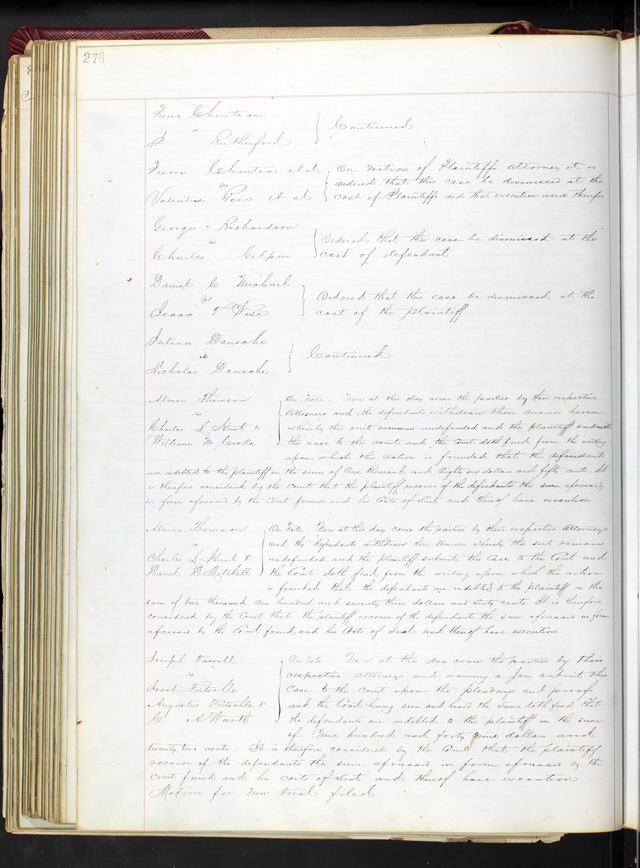 276
Chouteau
vs } Continued
Rutherford
Chouteau et al } On motion of Plaintiffs attorney it is
vs ordered that this case be dismissed at the
Valentine et al cost of Plaintiffs and that execution issue therefor
George Richardson
vs } Ordered that this case be dismissed at the
Charles Gilpin cost of defendant
Daniel C Michael
vs } Ordered that this case be dismissed at the
Isaac T Wise cost of the plaintiff
Julian Dansahe
vs } Continued
Nicholas Dansahe
Almon Thomson On Note. Now at this day come the parties by their respective
vs Attorneys and the defendants withdraw their answer herein
Charles L Hunt & whereby this suit remains undefended and the plaintiff submits
William M Cooke the case to the court and the Court doth find from the writing
upon which the action is founded that the defendants
are indebted to the plaintiff in the sum of One thousand and Eighty six dollars and fifty cents. It
is therefore considered by the Court that the plaintiff recover of the defendants the sum aforesaid
in form aforesaid by the Court found and his Costs of Suit and thereof have execution
Almon Thomson On Note. Now at this day come the parties by their respective Attorneys
vs and the defendants withdraw their Answer whereby this suit remains
Charles L Hunt & undefended and the plaintiff submits the Case to the Court and
David D Mitchell the Court doth find from the writing upon which the action
is founded that the defendants are indebted to the plaintiff in the
sum of two thousand one hundred and seventy three dollars and sixty cents. It is therefore
considered by the Court that the plaintiff recover of the defendants the sum aforesaid in form
aforesaid by the Court found and his Costs of Suit and thereof have execution
Joseph On Note Now at this day come the parties by their
vs respective Attorneys and waiving a Jury submit this
Jacob case to the Court upon the pleadings and proofs
Augustus & and the Court having seen and heard the same doth find that
C A Wurth the defendants are indebted to the plaintiff in the sum
of hundred and forty nine dollars and
twenty two cents. It is therefore considered by the Court that the plaintiff
recover of the defendants the sum aforesaid in form aforesaid by the
court found and his costs of Suit and thereof have execution
Motion for new trial filed